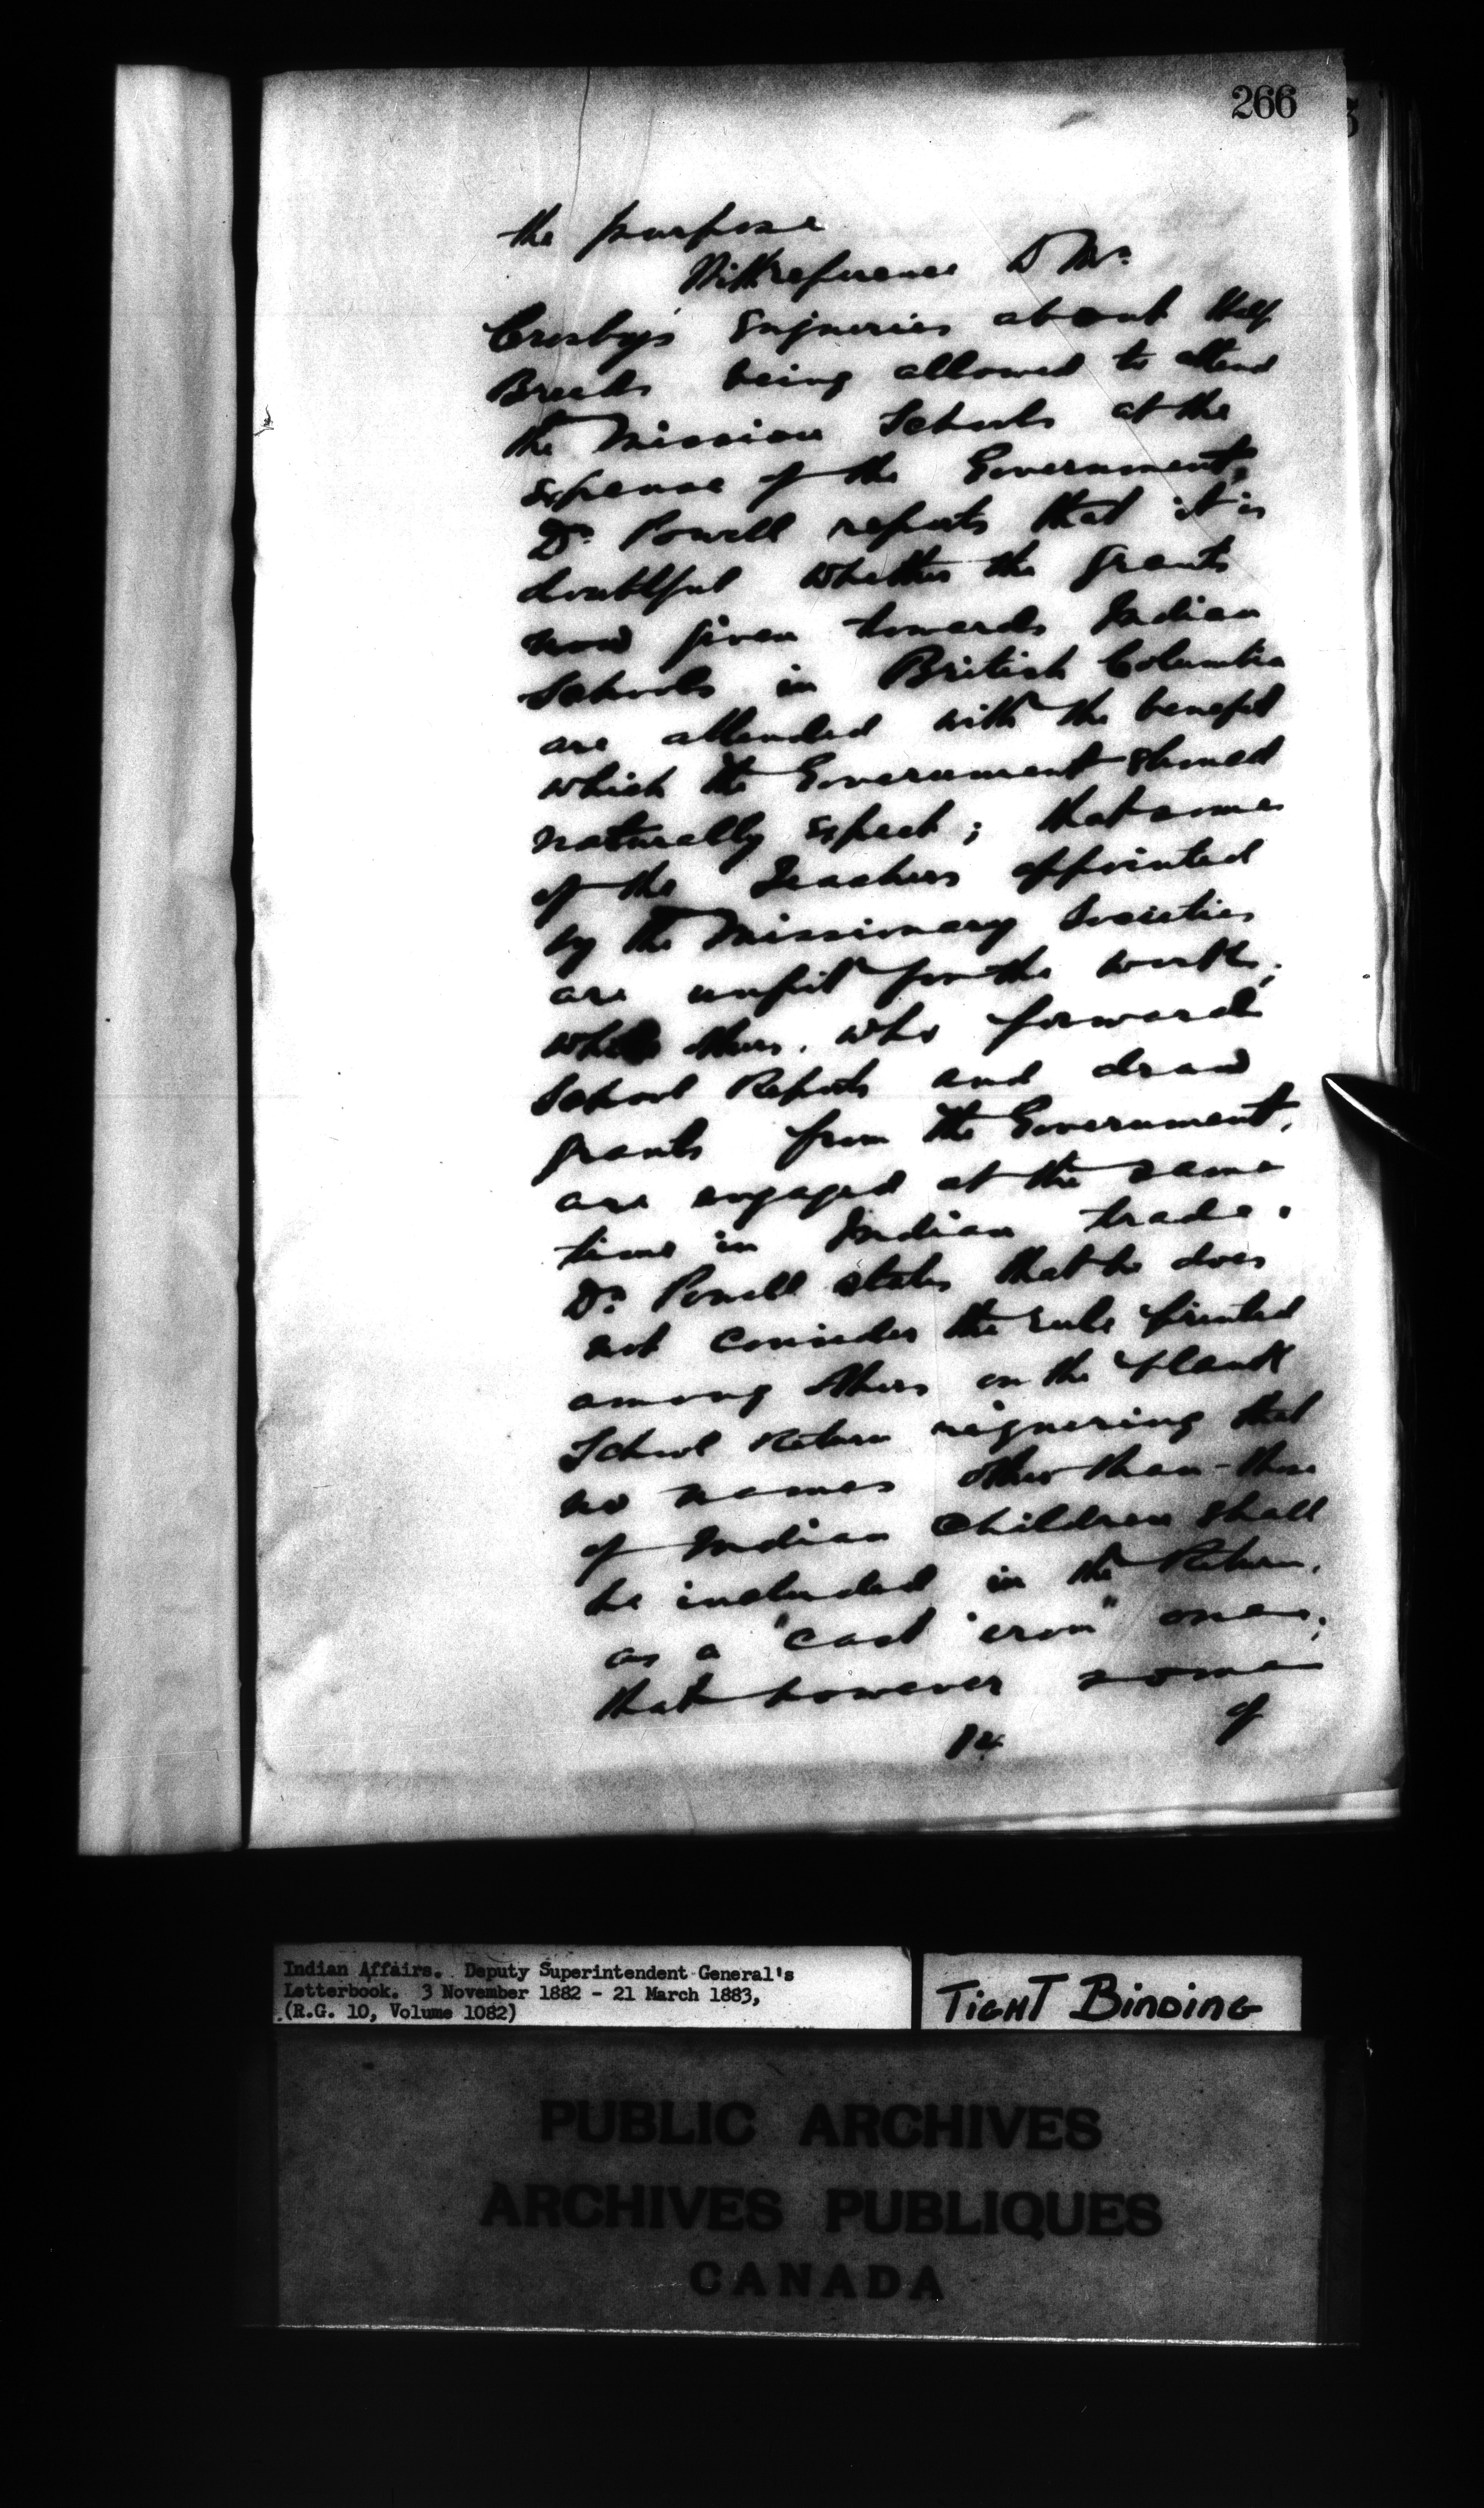 266
the purpose
With reference to Mr.
Crosby's enqueries about Half
Breeds being allowed to attend
the Mission Schools at the
expense of the Government,
Dr. Powell reports that it is
doubtful whether the grants
now given towards Indian
Schools in British Columbia
are attended with the benefit
which the Government should
naturally expect; that some
of the Teachers appointed
by the Missionary Societies
are unfit for the work;
while others, who forward
School Reports and draw
grants from the Government,
are engaged at the same
time in Indian trade.
Dr. Powell states that he does
not consider the rule printed
among others on the blank
School Return requering that
no names other than those
of Indian Children shall
be included in the Return,
as a "cast iron" one;
that however some
of
Indian Affairs. Deputy Superintendent General's
Letterbook. 3 November 1882 - 21 March 1883,
(R.G. 10, Volume 1082)
TIGHT BINDING
PUBLIC ARCHIVES
ARCHIVES PUBLIQUES
CANADA